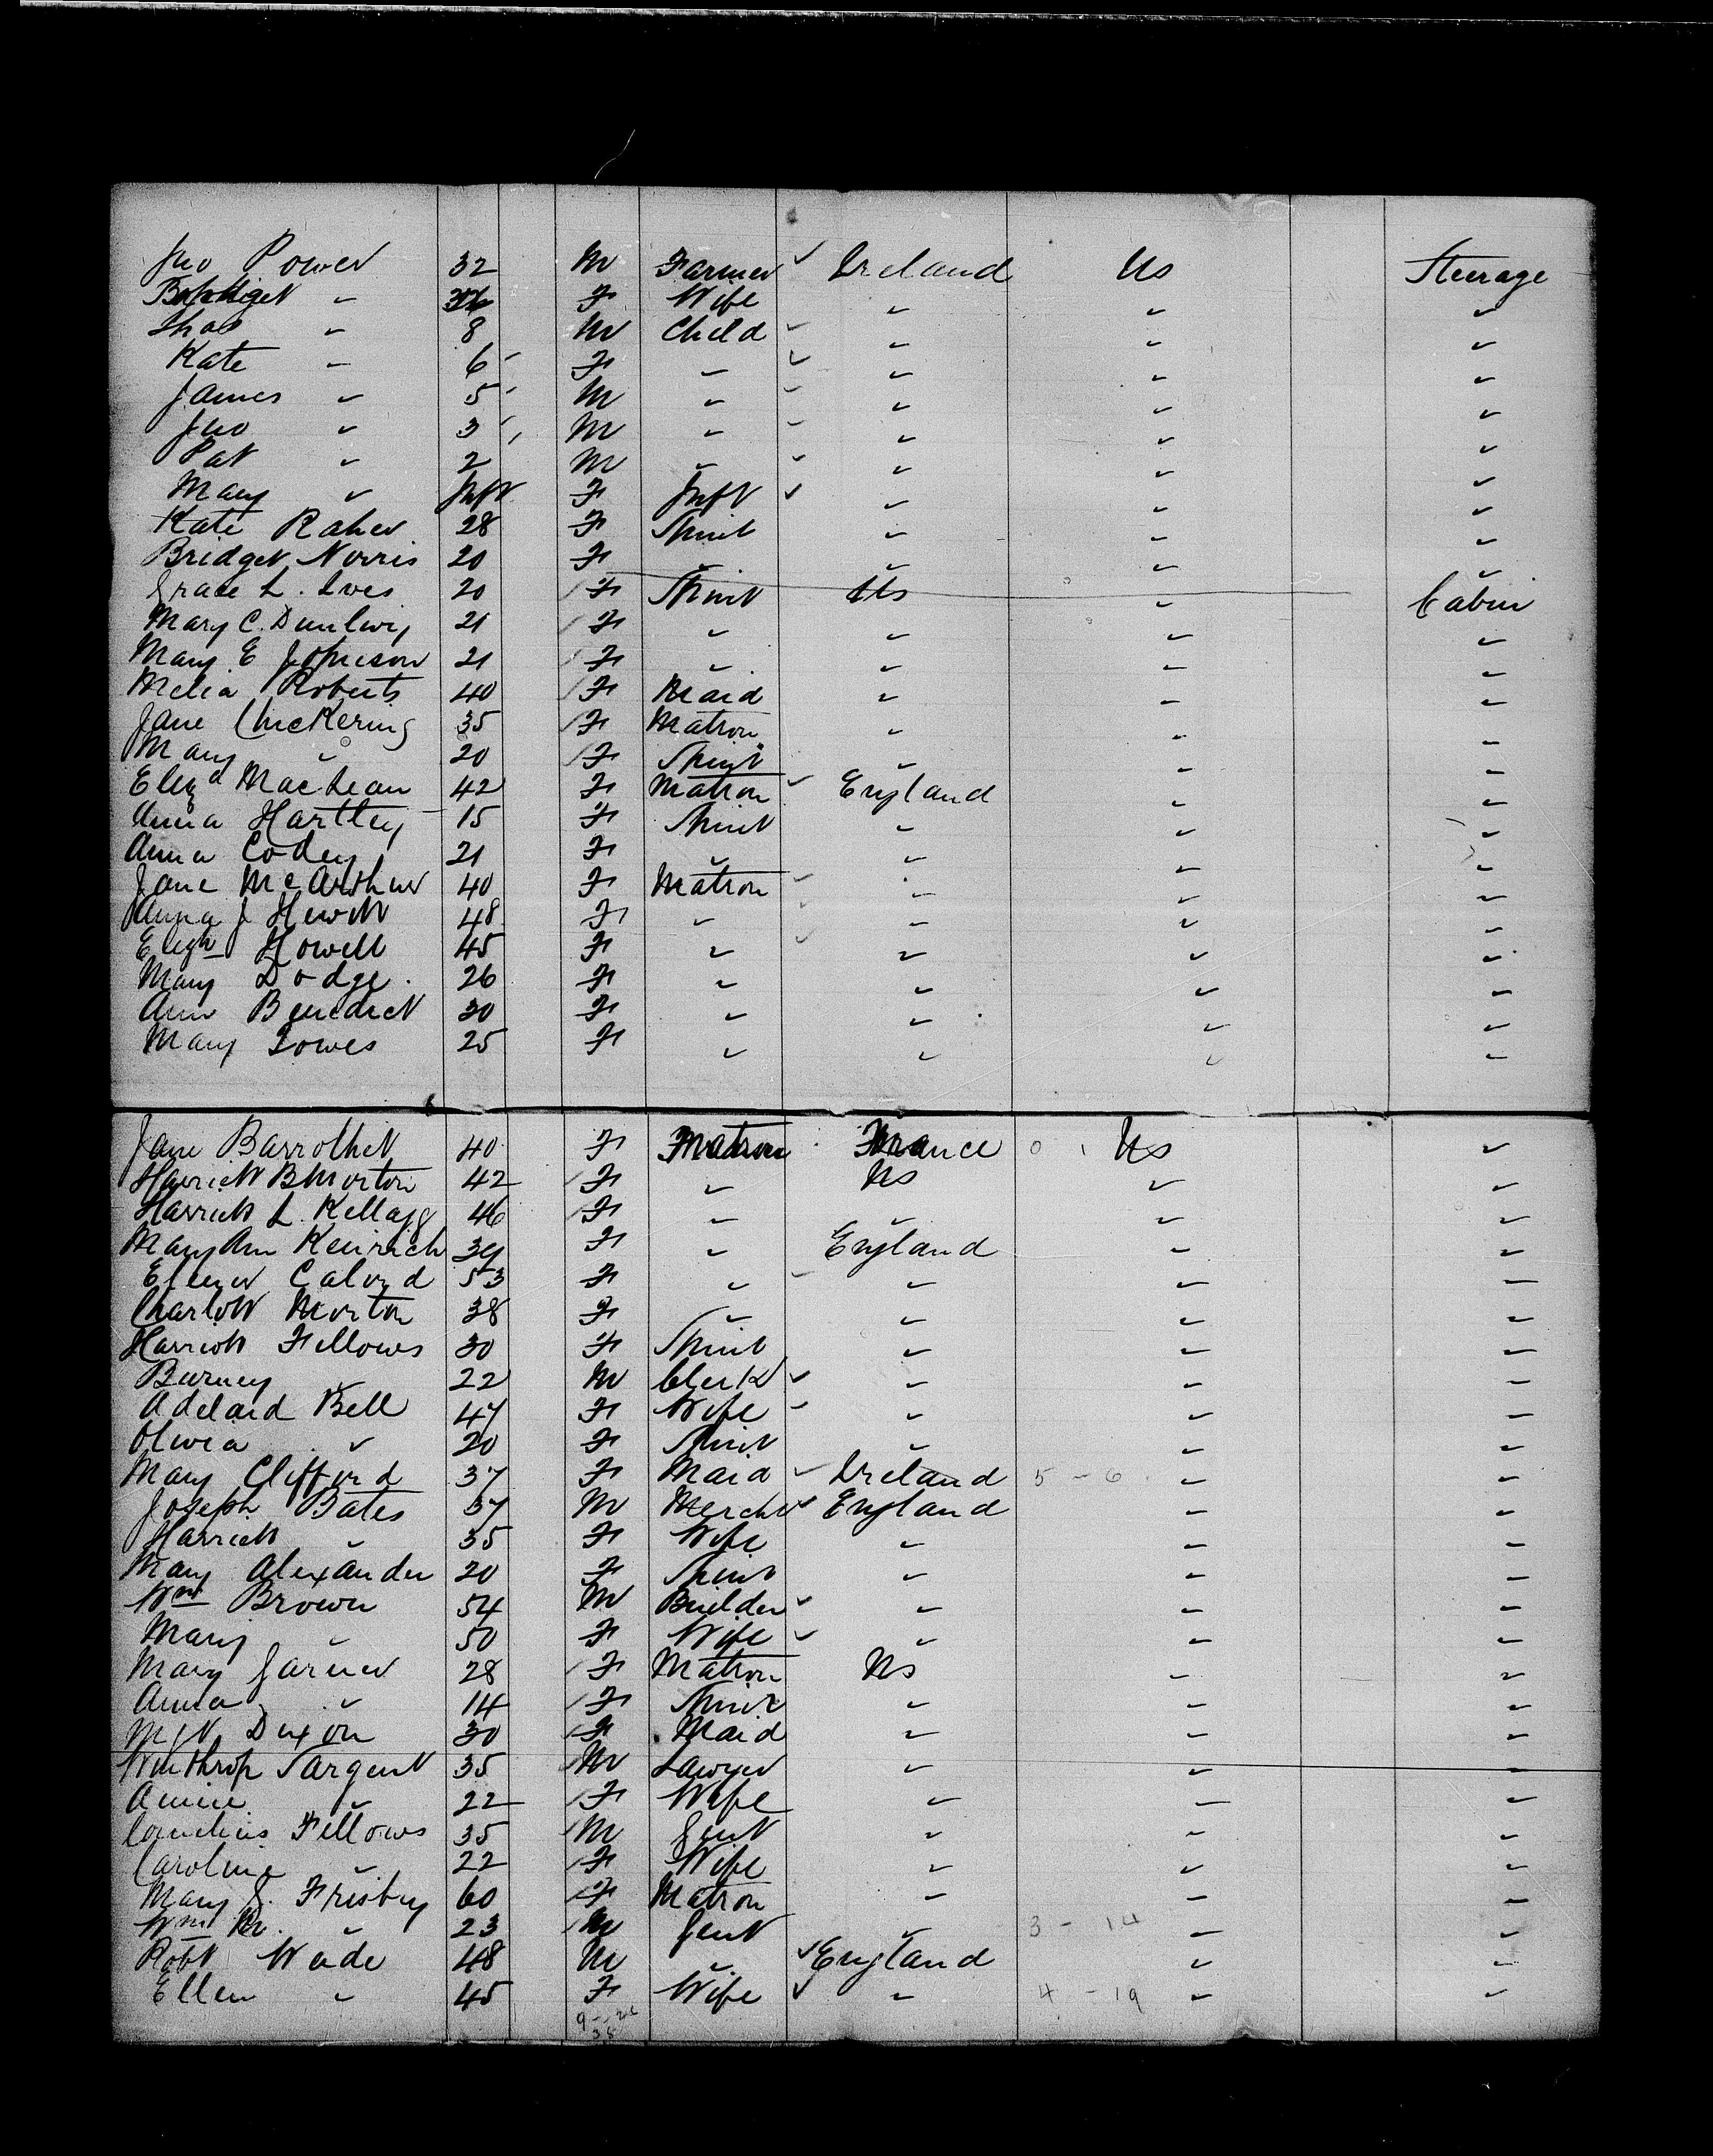 Jno Power 32 M Farmer ✓ Ireland Us Steerage
Bridget " F Wife " " "
Thos " 8 M Child ✓ " " "
Kate " 6 F " ✓ " " "
James " 5 M " ✓ " " "
Jno " 3 M " ✓ " " "
Pat " 2 M " ✓ " " "
Mary " Inft F Inft ✓ " " "
Kate Raher 28 F Spinst " " "
Bridget Norris 20 F " " " "
Grace L. Ives 20 F Spinst Us " Cabin
Mary C. Dunlevy 21 F " " " "
Mary E Johnson 21 F " " " "
Melia Roberts 40 F Maid " " "
Jane Chickering 35 F Matron " " "
Mary " 20 F Spinst " " "
Eliza MacLean 42 F Matron ✓ England " "
Anna Hartley 15 F Spinst " " "
Anna Codey 21 F " " " "
Jane McArthur 40 F Matron ✓ " " "
Anna J Hewitt 48 F " ✓ " " "
Elizh Howell 45 F " ✓ " " "
Mary Dodge 26 F " " " "
Ann Benedict 30 F " " " "
Mary Lowes 25 F " " " "
Jane Barrothet 40 F Matron France Us "
Harriett B Morton 42 F " Us " "
Harriett L. Kellogg 46 F " " " "
Mary Ann Kenrich 39 F " England " "
53 F " ✓ " " "
Charlott Morton 38 F " " " "
Harriott Fellows 30 F Spinst " " "
Burney " 22 M Clerk ✓ " " "
Adelaid Bell 47 F Wife ✓ " " "
Olivia " 20 F Spinst " " "
Mary Clifford 37 F Maid ✓ Ireland 5 - 6 " "
Joseph Bates 37 M Mercht ✓ England " "
Harriett " 35 F Wife " " "
Mary Alexander 20 F Spinst " " "
Wm Brown 54 M Builder ✓ " " "
Mary " 50 F Wife ✓ " " "
Mary Garner 28 F Matron Us " "
Anna " 14 F Spinst " " "
Dixon 30 F Maid " " "
Winthrop Sargent 35 M Lawyer " " "
Annie " 22 F Wife " " "
Cornelius Fellows 35 M Gent " " "
Caroline " 22 F Wife " " "
Mary J. Frisbey 60 F Matron " " "
Wm M. " 23 M Gent " 3 - 14 " "
Robt Wade 48 M " ✓ England " "
Ellen " 45 F Wife ✓ " 4 - 19 " "